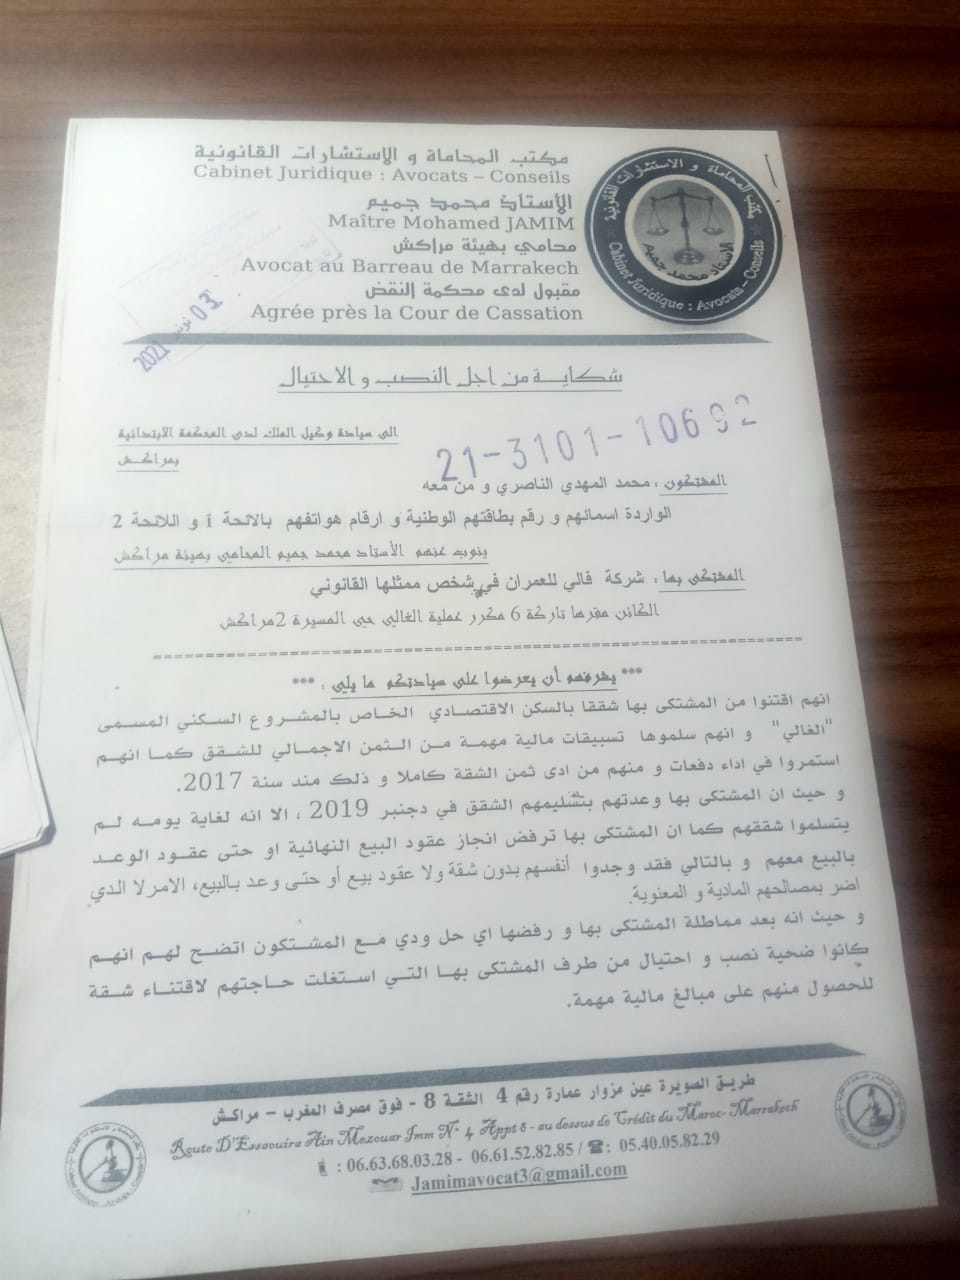 مكتب المحاماة و الإستشارات القانونية
Cabinet Juridique : Avocats – Conseils
الأستاذ محمد جميم
Maître Mohamed JAMIM
محامي بهيئة مراكش
Avocat au Barreau de Marrakech
مقبول لدى محكمة النقض
Agrée près la Cour de Cassation
مكتب المحاماة و الاستشارات القانونية
الاستاذ محمد جميم
Cabinet Juridique : Avocats – Conseils
03 نونبر 2021
شكاية من اجل النصب و الاحتيال
الى سيادة وكيل الملك لدى المحكمة الابتدائية
بمراكش
21-3101-10692
المشتكون : محمد المهدي الناصري و من معه
الواردة اسمائهم و رقم بطاقتهم الوطنية و ارقام هواتفهم بالائحة 1 و اللائحة 2
ينوب عنهم الأستاذ محمد جميم المحامي بهيئة مراكش
المشتكى بها : شركة فالي للعمران في شخص ممثلها القانوني
الكائن مقرها تاركة 6 مكرر عملية الغالي حي المسيرة 2 مراكش
*** يشرفهم أن يعرضوا على سيادتكم ما يلي : ***
انهم اقتنوا من المشتكى بها شققا بالسكن الاقتصادي الخاص بالمشروع السكني المسمى
"الغالي" و انهم سلموها تسبيقات مالية مهمة من الثمن الاجمالي للشقق كما انهم
استمروا في اداء دفعات و منهم من ادى ثمن الشقة كاملا و ذلك مند سنة 2017.
و حيث ان المشتكى بها وعدتهم بتسليمهم الشقق في دجنبر 2019 ، الا انه لغاية يومه لم
يتسلموا شققهم كما ان المشتكى بها ترفض انجاز عقود البيع النهائية او حتى عقود الوعد
بالبيع معهم و بالتالي فقد وجدوا أنفسهم بدون شقة ولا عقود بيع أو حتى وعد بالبيع، الامرلا الذي
اضر بمصالحهم المادية و المعنوية.
و حيث انه بعد مماطلة المشتكى بها و رفضها اي حل ودي مع المشتكون اتضح لهم انهم
كانوا ضحية نصب و احتيال من طرف المشتكى بها التي استغلت حاجتهم لاقتناء شقة
للحصول منهم على مبالغ مالية مهمة.
طريق الصويرة عين مزوار عمارة رقم 4 الشقة 8 - فوق مصرف المغرب – مراكش
Route D'Essaouira Ain Mezouar Imm N° 4 Appt 8 - au dessus de Crédit du Maroc- Marrakech
: 06.63.68.03.28 - 06.61.52.82.85 / ☎: 05.40.05.82.29
Jamimavocat3@gmail.com